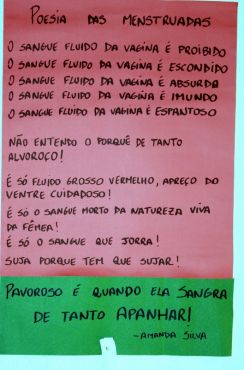 POESIA DAS MENSTRUADAS
O SANGUE FLUIDO DA VAGINA É PROIBIDO
O SANGUE FLUIDO DA VAGINA É ESCONDIDO
O SANGUE FLUIDO DA VAGINA É ABSURDO
O SANGUE FLUIDO DA VAGINA É IMUNDO
O SANGUE FLUIDO DA VAGINA É ESPANTOSO
NÃO ENTENDO O PORQUÊ DE TANTO
ALVOROÇO!
É SÓ FLUIDO GROSSO VERMELHO, APREÇO DO
VENTRE CUIDADOSO!
É SÓ O SANGUE MORTO DA NATUREZA VIVA
DA FÊMEA!
É SÓ O SANGUE QUE JORRA!
SUJA PORQUE TEM QUE SUJAR!
PAVOROSO É QUANDO ELA SANGRA
DE TANTO APANHAR!
-AMANDA SILVA